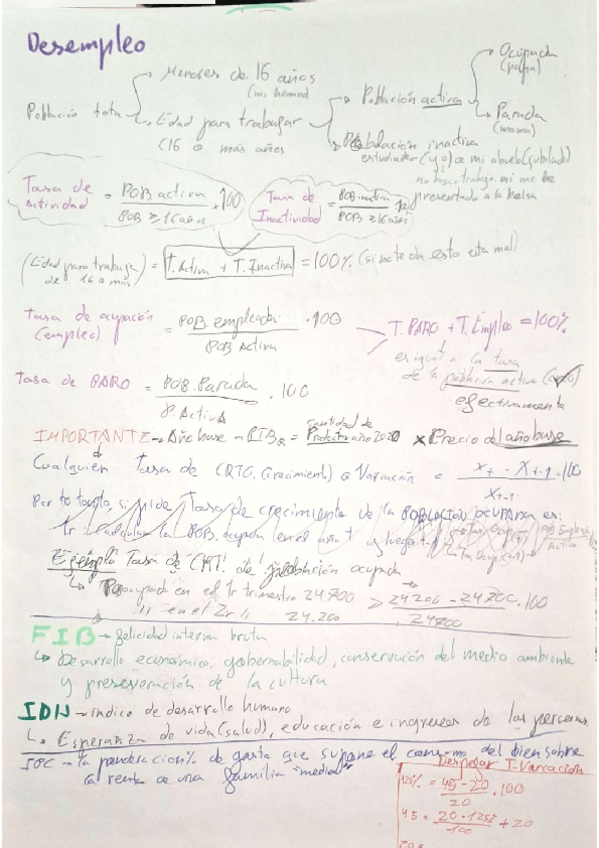 Desempleo
Menores de 16 años
(mi herman
Población total
Edad para trabajar
(16 o más años
Población activa
Ocupada
(papa)
Parada
(mama)
Población inactiva
estudiador (yo) o mi abuelo (jubilado)
no busco trabajo, ni me he
presentado a la bolsa
Tasa de
actividad = POB activa / POB ≥ 16 años · 100
Tasa de
Inactividad = POB inactiva / POB ≥ 16 años
(Edad para trabaja
de 16 o más) = T. Activa + T. Inactiva = 100% (si no te da esto esta mal)
Tasa de ocupación
(empleo) = POB. empleada / POB Activa · 100
T. PARO + T. Empleo = 100%
es igual a la tasa
de la población activa
efectivamente
Tasa de PARO = POB. Parada / P. Activa · 100
IMPORTANTE → Año base → PIB = cantidad de Productos año 2020 × Precio del año base
Cualquier Tasa de CRTO. (crecimiento) o Variación = Xt - Xt-1 / Xt-1 · 100
Por lo tanto, si pide Tasa de crecimiento de la POBLACION OCUPADA es:
1r calcular la POB. ocupada en el año t y luego t-1
Ejemplo Tasa de CRT! de población ocupada
ocupada en el 1r trimestre 24700 → 24200 - 24700 / 24700 · 100
1r en el 2r 11 24.200
FIB → felicidad interna bruta
↳ Desarrollo económico, gobernabilidad, conservación del medio ambiente
y preservación de la cultura
IDH → indice de desarrollo humano
↳ Esperanza de vida (salud), educación e ingresos de las personas
IPC → la ponderación % de gasto que supone el consumo del bien sobre
la renta de una familia "media"
Despejar T. Variación
125% = 45 - 20 / 20 · 100
45 = 20 · 125 / 100 + 20